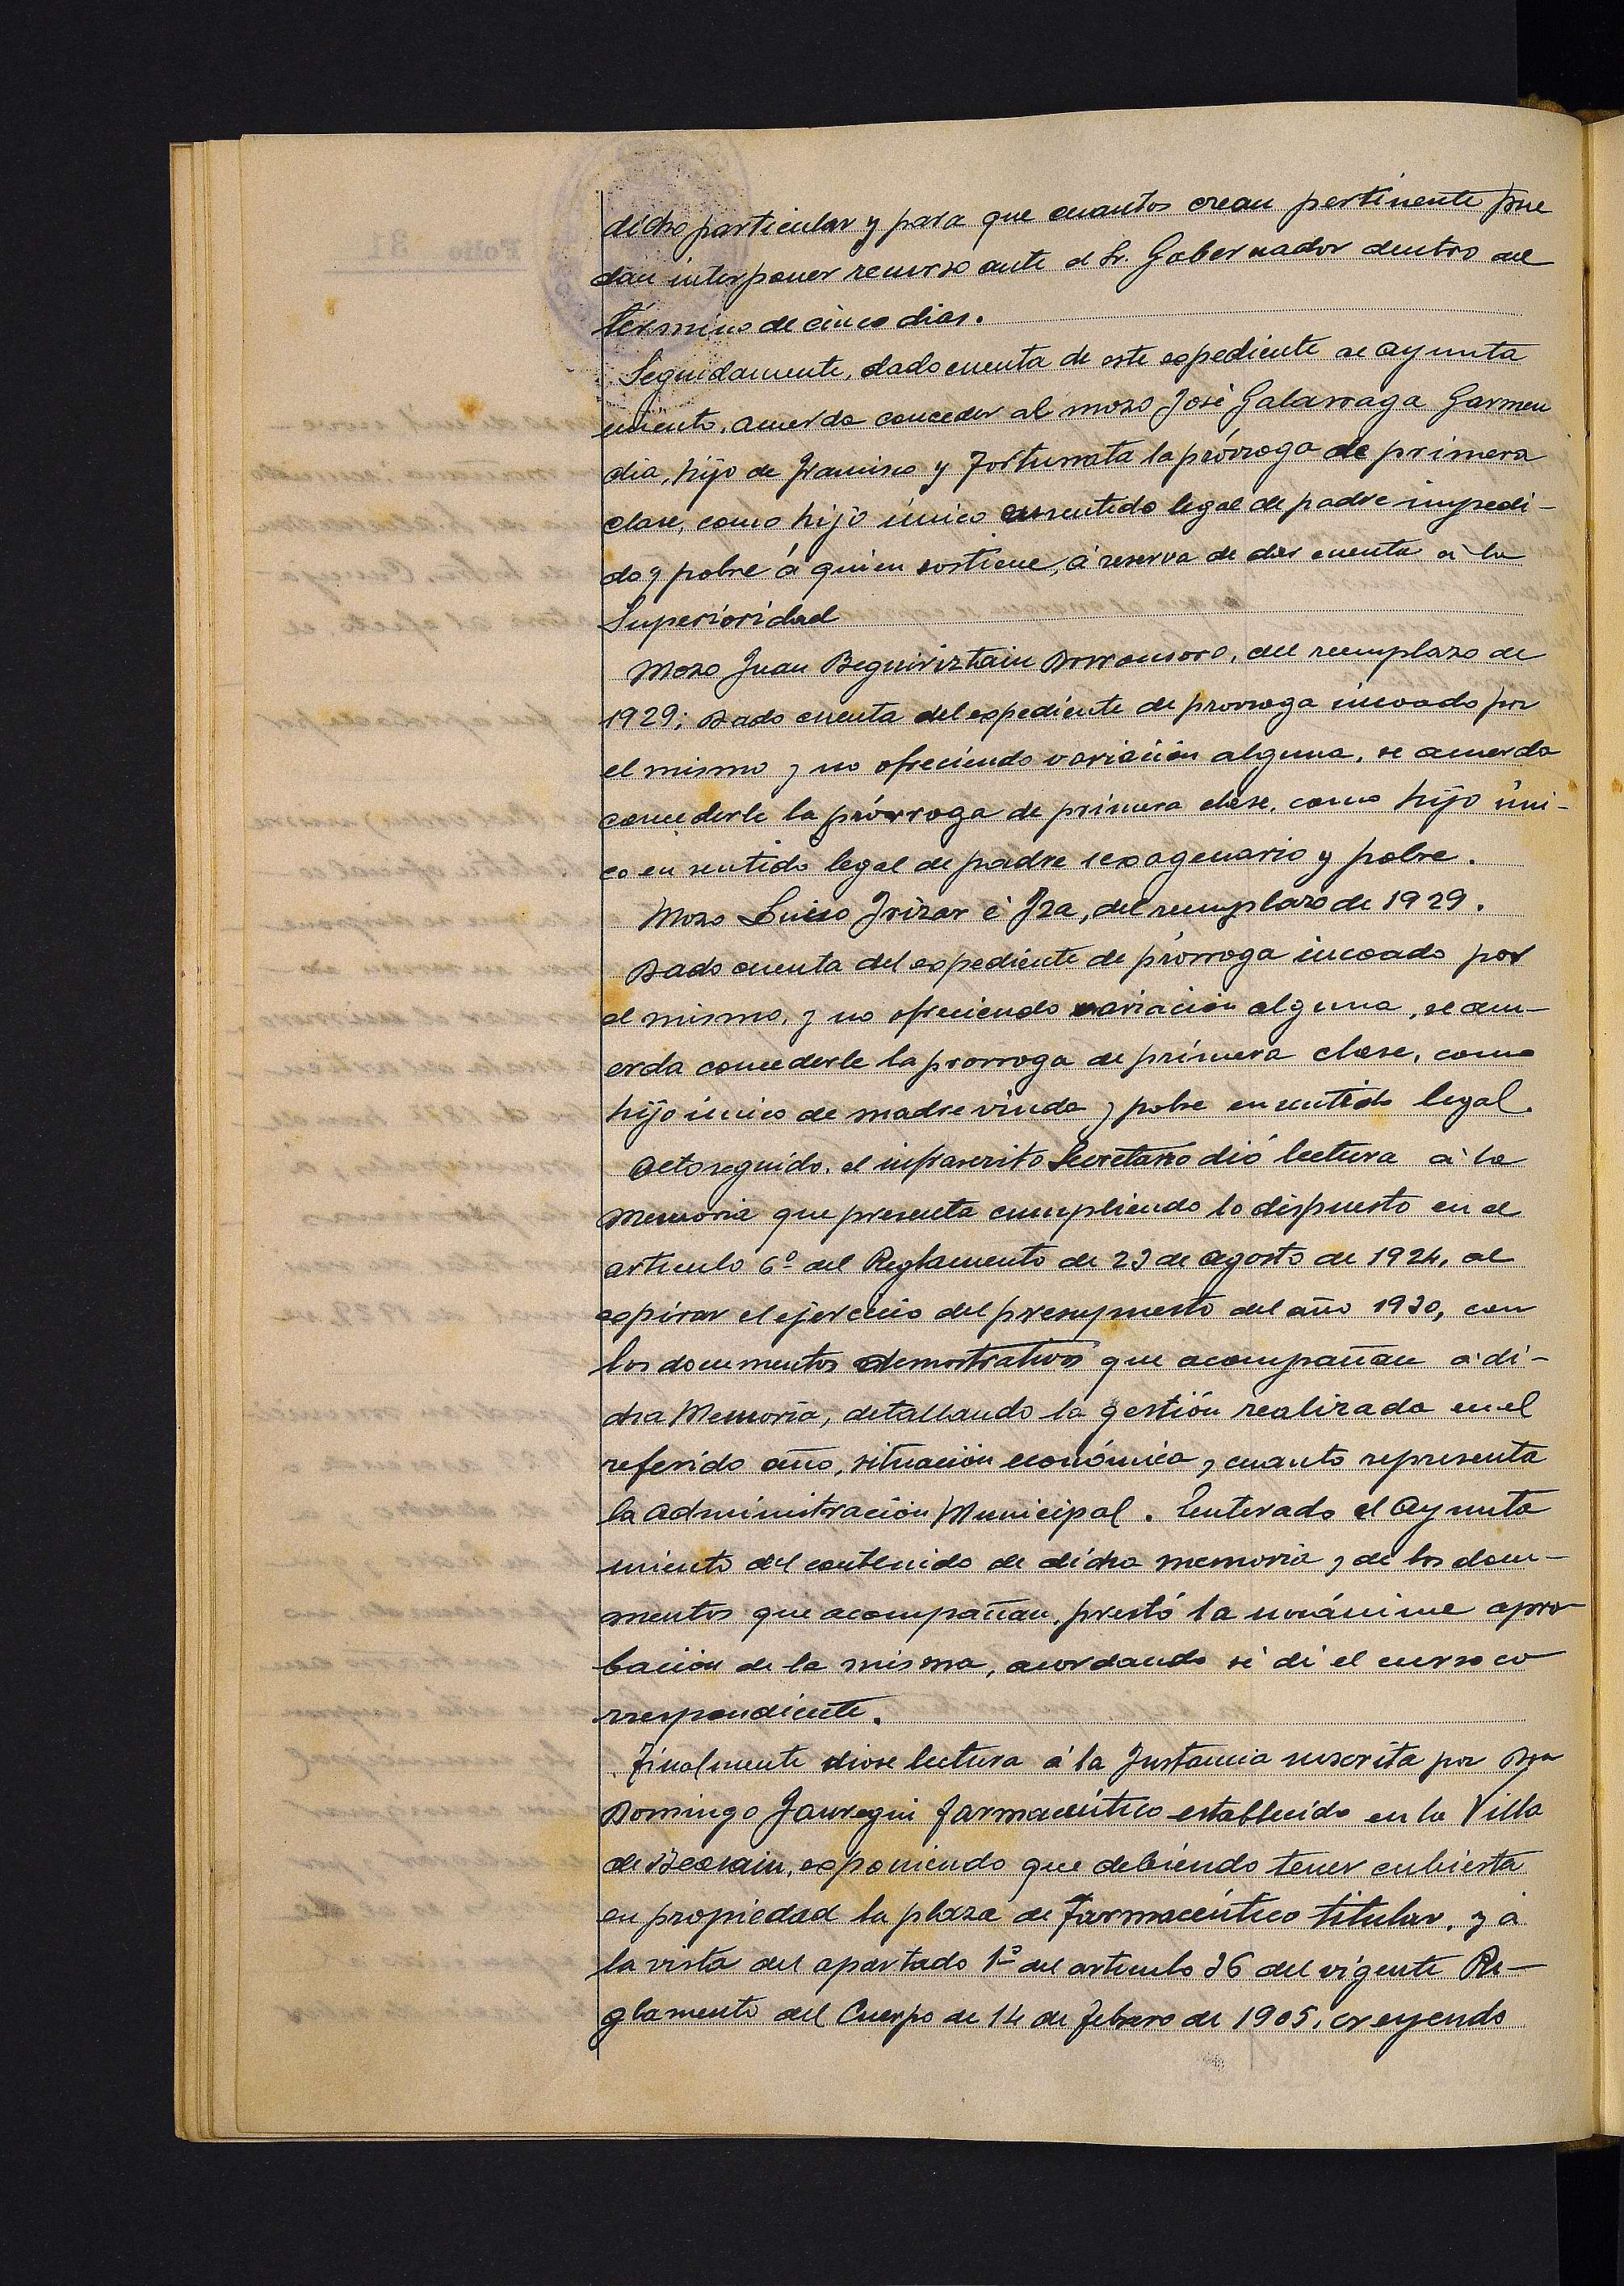 dicho particular y para que cuantos crean pertinente pue
dan interponer recurso ante el Sr. Gobernador dentro del
término de cinco dias.
Seguidamente, dado cuenta de este expediente el Ayunta
miento, acuerda conceder al mozo José Galarraga Garmen
dia, hijo de Francisco y Fortunata la prórroga de primera
clase, como hijo único en sentido legal de padre impedi-
do y pobre á quien sostiene, á reserva de dar cuenta á la
Superioridad
Mozo Juan Beguiristain Dorronsoro, del reemplazo de
1929; Dado cuenta del expediente de prorroga incoado por
el mismo y no ofreciendo variación alguna, se acuerda
concederle la prórroga de primera clase, como hijo úni-
co en sentido legal de padre sexagenario y pobre.
Mozo Luciso Irizar é Iza, del reemplazo de 1929.
Dado cuenta del expediente de prórroga incoado por
el mismo, y no ofreciendo variación alguna, se acu-
erda concederle la prorroga de primera clase, como
hijo único de madre viuda y pobre en sentido legal.
Acto seguido, el infrascrito Secretario dió lectura á la
Memoria que presenta cumpliendo lo dispuesto en el
articulo 6º del Reglamento de 23 de Agosto de 1924, al
expirar el ejercicio del presupuesto del año 1930, con
los documentos demostrativos que acompañan á di-
cha Memoria, detallando la gestión realizada en el
referido año, situación económica y cuanto representa
la Administración Municipal. Enterado el Ayunta
miento del contenido de dicha memoria y de los docu-
mentos que acompañan, prestó la unánime apro-
bación de la misma, acordando sé dé el curso co
rrespondiente.
Finalmente diose lectura á la Instancia suscrita por Don
Domingo Jauregui farmacéutico establecido en la Villa
de Beasain, exponiendo que debiendo tener cubierta
en propiedad la plaza de Farmacéutico titular, y á
la vista del apartado 1º del articulo 36 del vigente Re-
glamento del Cuerpo de 14 de febrero de 1905, creyendo